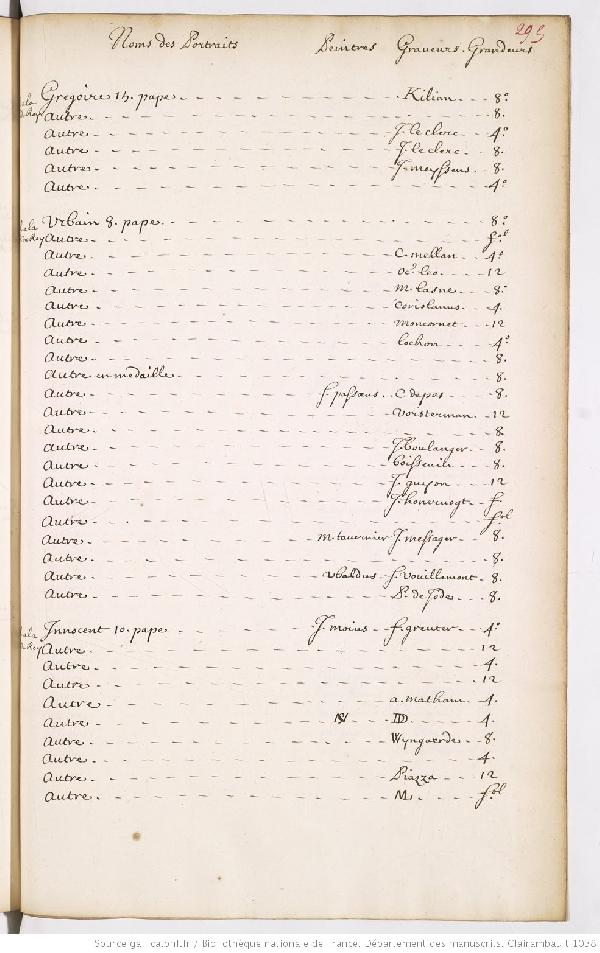 295
Noms des Portraits Peintres Graveurs. Grandeurs
Gregoire 15. pape Kilian 8°
Autre 8.
Autre J. le clerc 4°
Autre J. le clerc 8.
Autre J. meyssens 8.
Autre 4°
Vrbain 8. pape 8°
Autre fol
Autre C. mellan 4°
Autre 12
Autre m. lasne 8.
Autre Coriolanus 4.
Autre moncornet 12
Autre lochon 4°
Autre 8.
Autre en medaille 8.
Autre C. de pas 8.
Autre Vorsterman 12
Autre 8.
Autre J. Boulanger 8.
Autre 8.
Autre 12
Autre f.
Autre fol
Autre m. tavernier J. messager 8.
Autre 8.
Autre Vbaldus f. Vouillemont 8.
Autre de Jode 8.
Innocent 10. pape f. greuter 4°
Autre 12
Autre 4.
Autre 12
Autre a. matham 4.
Autre 4.
Autre Wyngaerde 8.
Autre 4.
Autre Piazza 12
Autre M fol
Source gallica.bnf.fr / Bibliothèque nationale de France. Département des manuscrits. Clairambault 1038